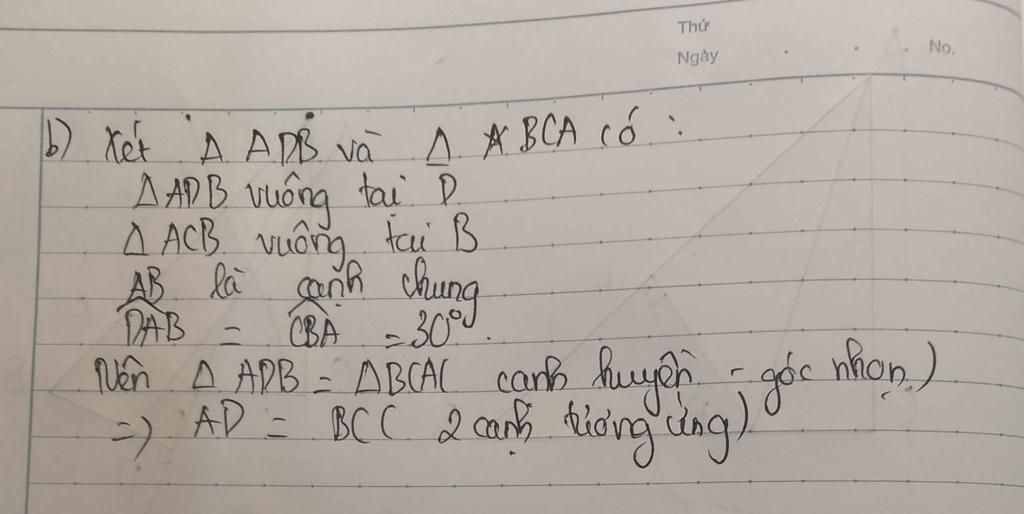 Thứ
Ngày
No.
b) Xét Δ ADB và Δ BCA có :
ΔADB vuông tại D
Δ ACB vuông tại B
AB là cạnh chung
DAB = CBA = 30°.
Nên Δ ADB = ΔBCA( cạnh huyền - góc nhọn)
=) AD = BC( 2 cạnh tương ứng)